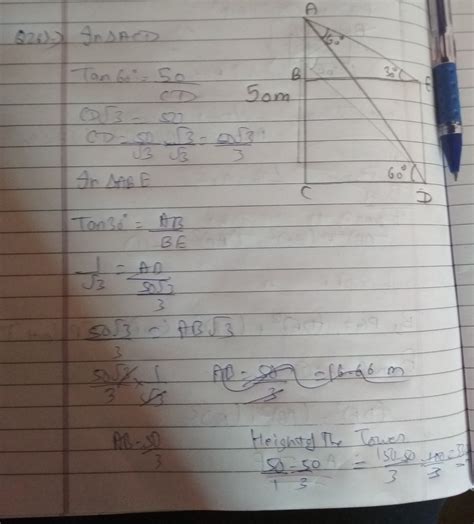 Q26)) In ΔACD
Tan60° = 50/CD
CD√3 = 50
CD = 50/√3 × √3/√3 = 50√3/3
In ΔABE
Tan30° = AB/BE
1/√3 = AB/(50√3/3)
50√3/3 = AB√3
50√3/3 × 1/√3
AB = 50/3 = 16.66 m
AB = 50/3
Height of The Tower
50/1 - 50/3 = 150-50/3
A
60°
B
30°
E
50m
60°
C
D